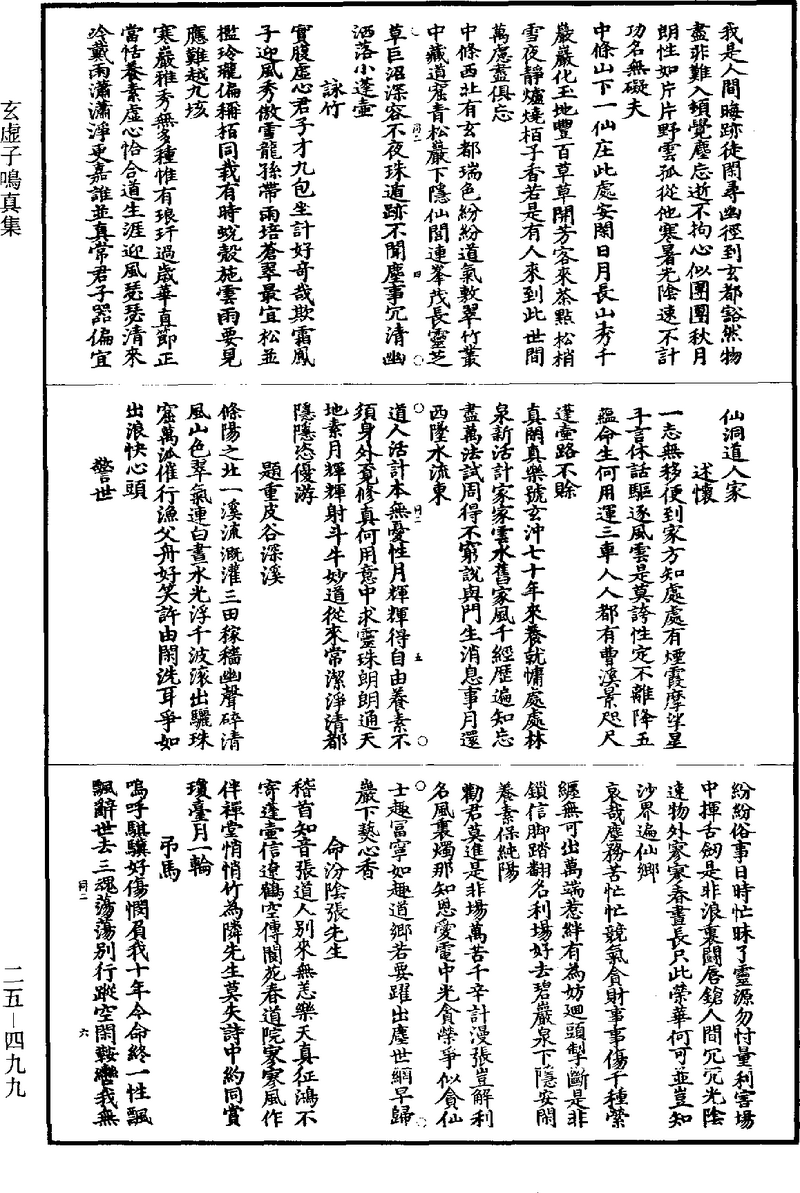 我是人間晦跡徒閑尋幽徑到玄都豁然物
盡非難入頓覺塵忘逝不拘心似團團秋月
朗性如片片野雲孤從他寒暑光陰速不計
功名無礙夫
中條山下一仙庄此處安閑日月長山秀千
巖巖化玉地豐百草草開芳客來茶點松梢
雪夜靜爐燒栢子香若是有人來到此世間
萬慮盡俱忘
中條西北有玄都瑞色紛紛道氣敷翠竹叢
中藏道窟青松巖下隱仙閭連峯茂長靈芝
草巨沼深容不夜珠遁跡不聞塵事冗清幽
洒落小蓬壺
詠竹
實腹虛心君子才九包坐計好奇哉欺霜鳳
子迎風秀傲雪龍孫帶雨培蒼翠最宜松並
檻玲瓏偏稱栢同栽有時蛻殼施雲雨要見
應難越九垓
寒巖雅秀無多種惟有琅玕過歲華真節正
當恬養素虛心恰合道生涯迎風瑟瑟清來
冷戴雨瀟瀟淨更嘉誰並真常君子器偏宜
仙洞道人家
述懷
一志無移便到家方知處處有煙霞摩挲星
斗言休話驅逐風雲是莫誇性定不離降五
蘊命生何用運三車人人都有曹溪景咫尺
蓬壺路不賒
真閑真樂號玄沖七十年來養就慵處處林
泉新活計家家雲水舊家風千經歷遍知忘
盡萬法試周得不窮說與門生消息事月還
西墜水流東
道人活計本無憂性月輝輝得自由養素不
須身外覓修真何用意中求靈珠朗朗通天
地素月輝輝射斗牛妙道從來常潔淨清都
隱隱恣優游
題重皮谷深溪
條陽之北一溪流溉灌三田稼穡幽聲碎清
風山色翠氣連白晝水光浮千波滾出驪珠
窟萬派催行漁父舟好笑許由閑洗耳爭如
出浪快心頭
警世
紛紛俗事日時忙昧了靈源勿忖量利害場
中揮舌劒是非浪裏鬪唇鎗人間冗冗光陰
速物外寥寥春晝長只此榮華何可並豈知
沙界遍仙鄉
哀哉塵務苦忙忙競氣貪財事事傷千種縈
纏無可出萬端惹絆有為妨迴頭掣斷是非
鎖信脚踏翻名利場好去碧巖泉下隱安閑
養素保純陽
勸君莫進是非場萬苦千辛計漫張豈解利
名風裏燭那知恩愛電中光貪榮爭似貪仙
士趣富寧如趣道鄉若要躍出塵世網早歸
巖下爇心香
命汾陰張先生
稽首知音張道人別來無恙樂天真征鴻不
寄蓬壺信遼鶴空傳閬苑春道院家家風作
伴禪堂悄悄竹為隣先生莫失詩中約同賞
瓊臺月一輪
弔馬
嗚呼騏驥好傷憫負我十年今命終一性飄
飄辭世去三魂蕩蕩別行蹤空閑鞍轡我無
玄虛子鳴真集
二五—四九九
同二
四
同二
五
同二
六